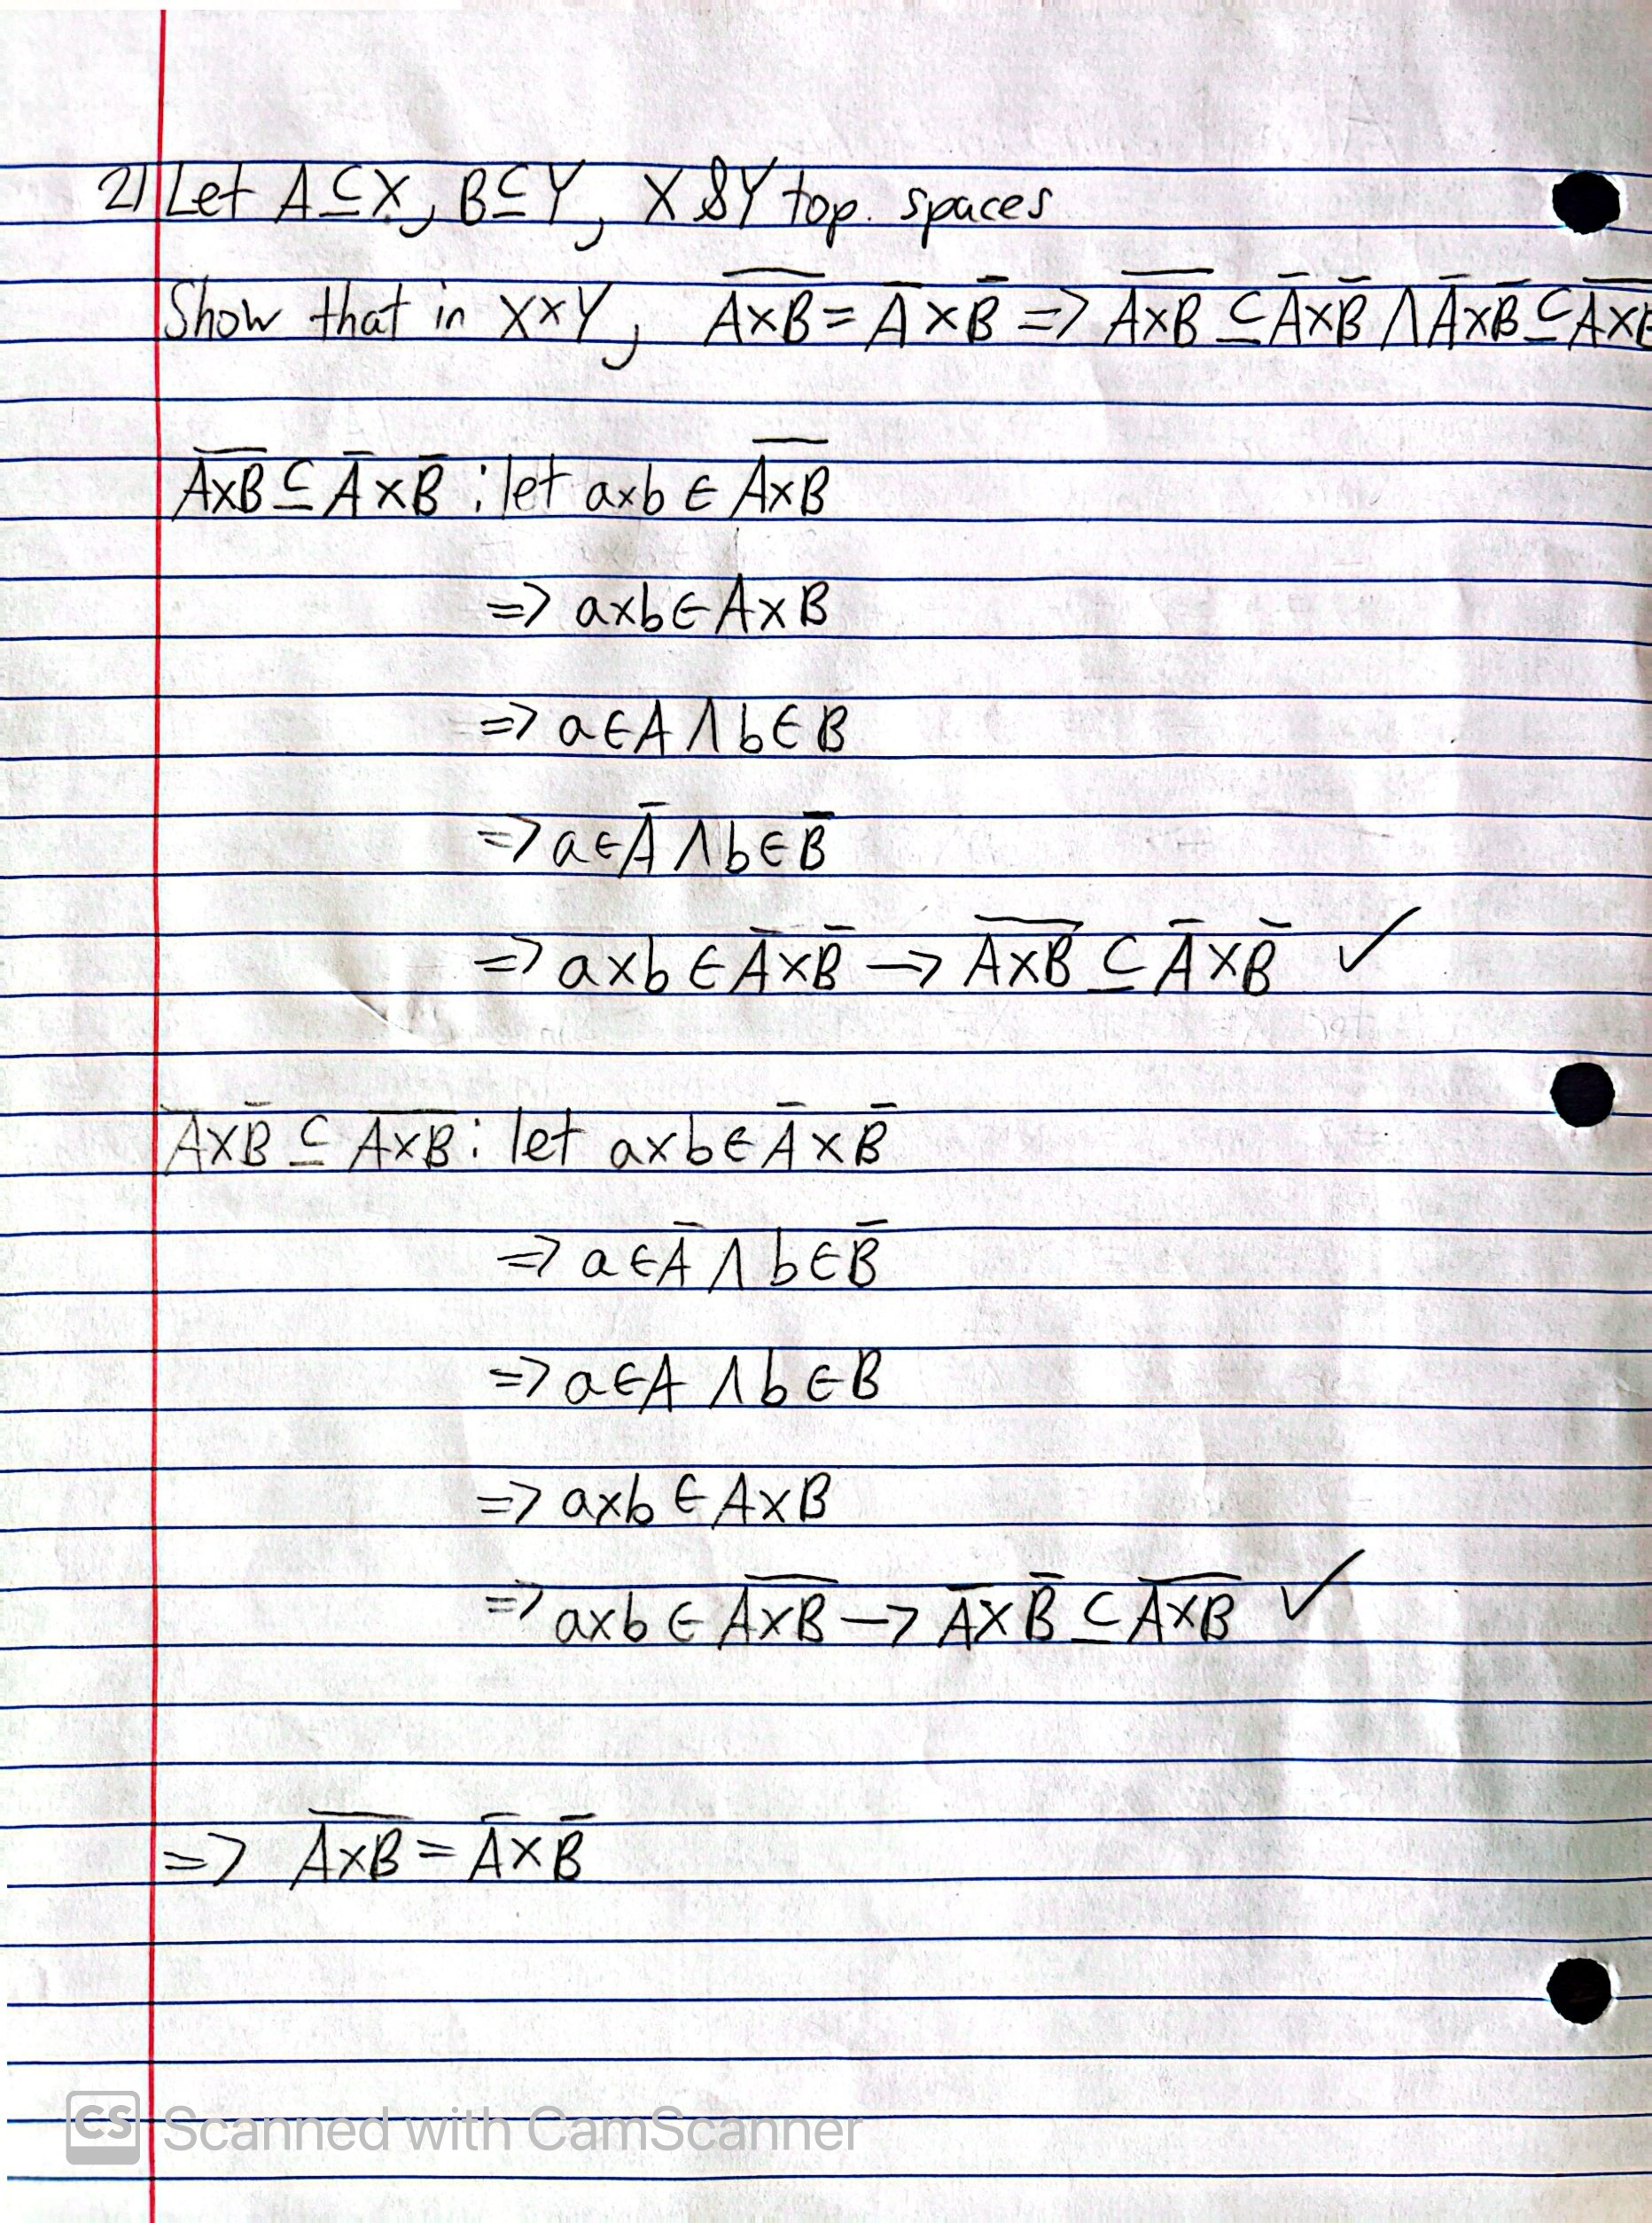 2) Let A ⊆ X, B ⊆ Y, X & Y top. spaces
Show that in X×Y, \overline{A×B} = Ā × B̄ => \overline{A×B} ⊆ Ā×B̄ ∧ Ā×B̄ ⊆ \overline{A×B}
\overline{A×B} ⊆ Ā×B̄ : let a×b ∈ \overline{A×B}
=> a×b ∈ A×B
=> a∈A ∧ b∈B
=> a∈Ā ∧ b∈B̄
=> a×b ∈ Ā×B̄ → \overline{A×B} ⊆ Ā×B̄ ✓
Ā×B̄ ⊆ \overline{A×B} : let a×b ∈ Ā×B̄
=> a∈Ā ∧ b∈B̄
=> a∈A ∧ b∈B
=> a×b ∈ A×B
=> a×b ∈ \overline{A×B} → Ā×B̄ ⊆ \overline{A×B} ✓
=> \overline{A×B} = Ā×B̄
CS Scanned with CamScanner